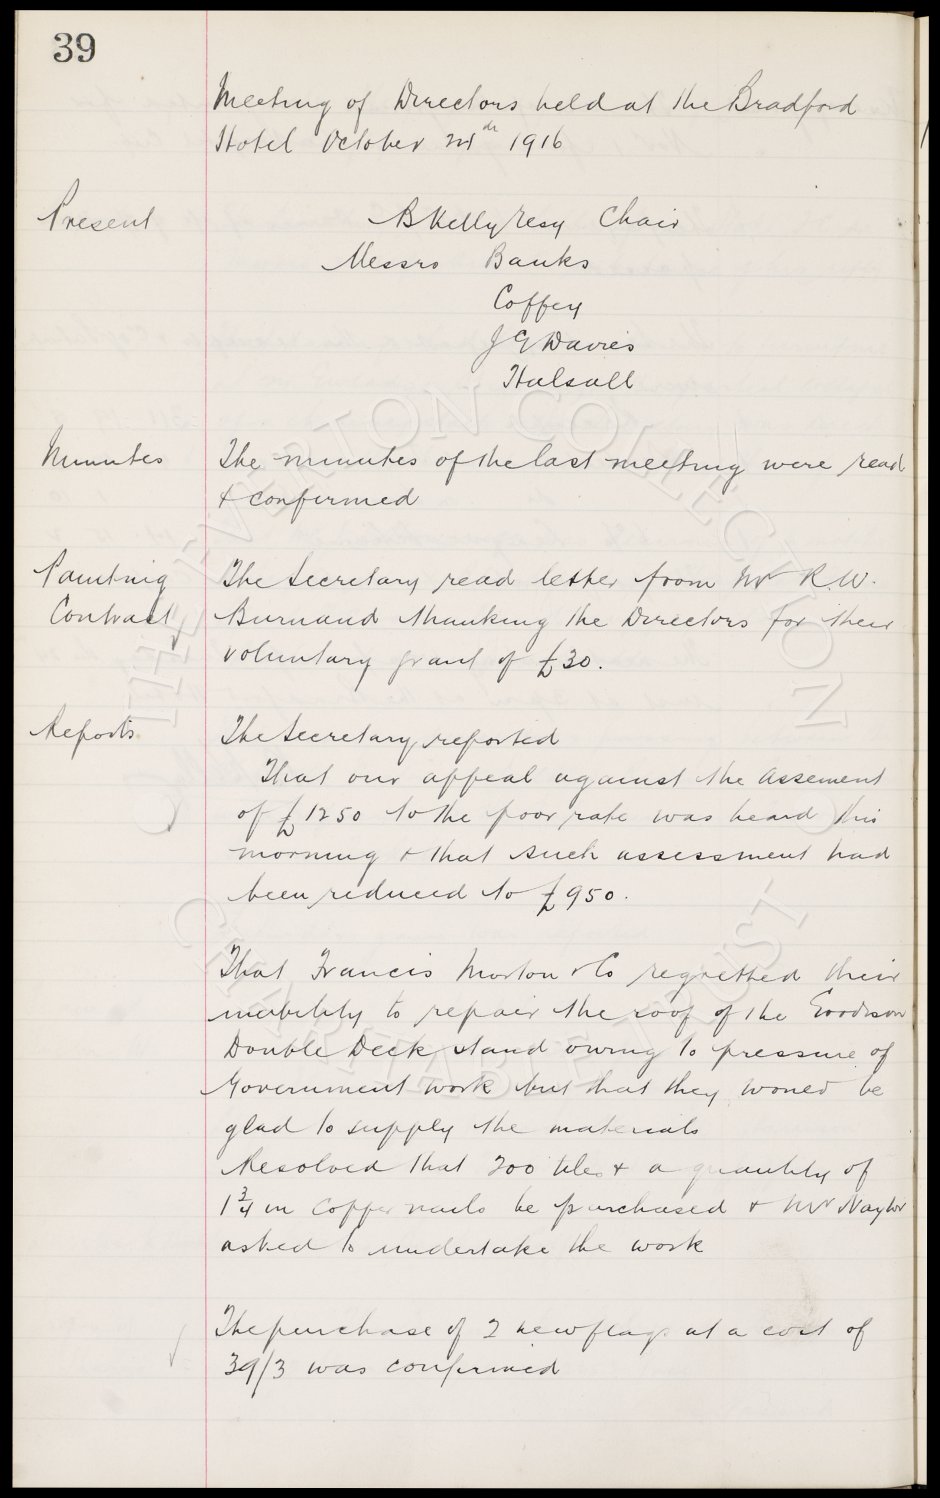 39
Meeting of Directors held at the Bradford
Hotel October 24th 1916
Present
B Kelly Esq Chair
Messrs Banks
Coffey
J G Davies
Halsall
Minutes
The minutes of the last meeting were read
& confirmed
Painting
Contract
The Secretary read letter from Mr R.W.
Burnand thanking the Directors for their
voluntary grant of £30.
Reports
The Secretary reported
That our appeal against the assement
of £1250 to the poor rate was heard this
morning & that such assessment had
been reduced to £950.
That Francis Morton & Co regretted their
inability to repair the roof of the Goodison
Double Deck stand owing to pressure of
Government work but that they would be
glad to supply the materials
Resolved that 200 tiles & a quantity of
1 3/4 in Copper nails be purchased & Mr Naylor
asked to undertake the work
The purchase of 2 new flags at a cost of
39/3 was confirmed
THE EVERTON COLLECTION
CHARITABLE TRUST